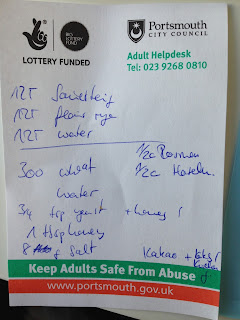 BIG
LOTTERY
FUND
LOTTERY FUNDED
Portsmouth
CITY COUNCIL
Adult Helpdesk
Tel: 023 9268 0810
1 2 T Sauerteig
1 2 T plain rye
1 2 T water
300 wheat
1/2c Rosinen
water
1/2c Haseln.
3/4 tsp yeast + honey !
1 tbsp honey
8 g salt
Kakao +
Keep Adults Safe From Abuse
www.portsmouth.gov.uk